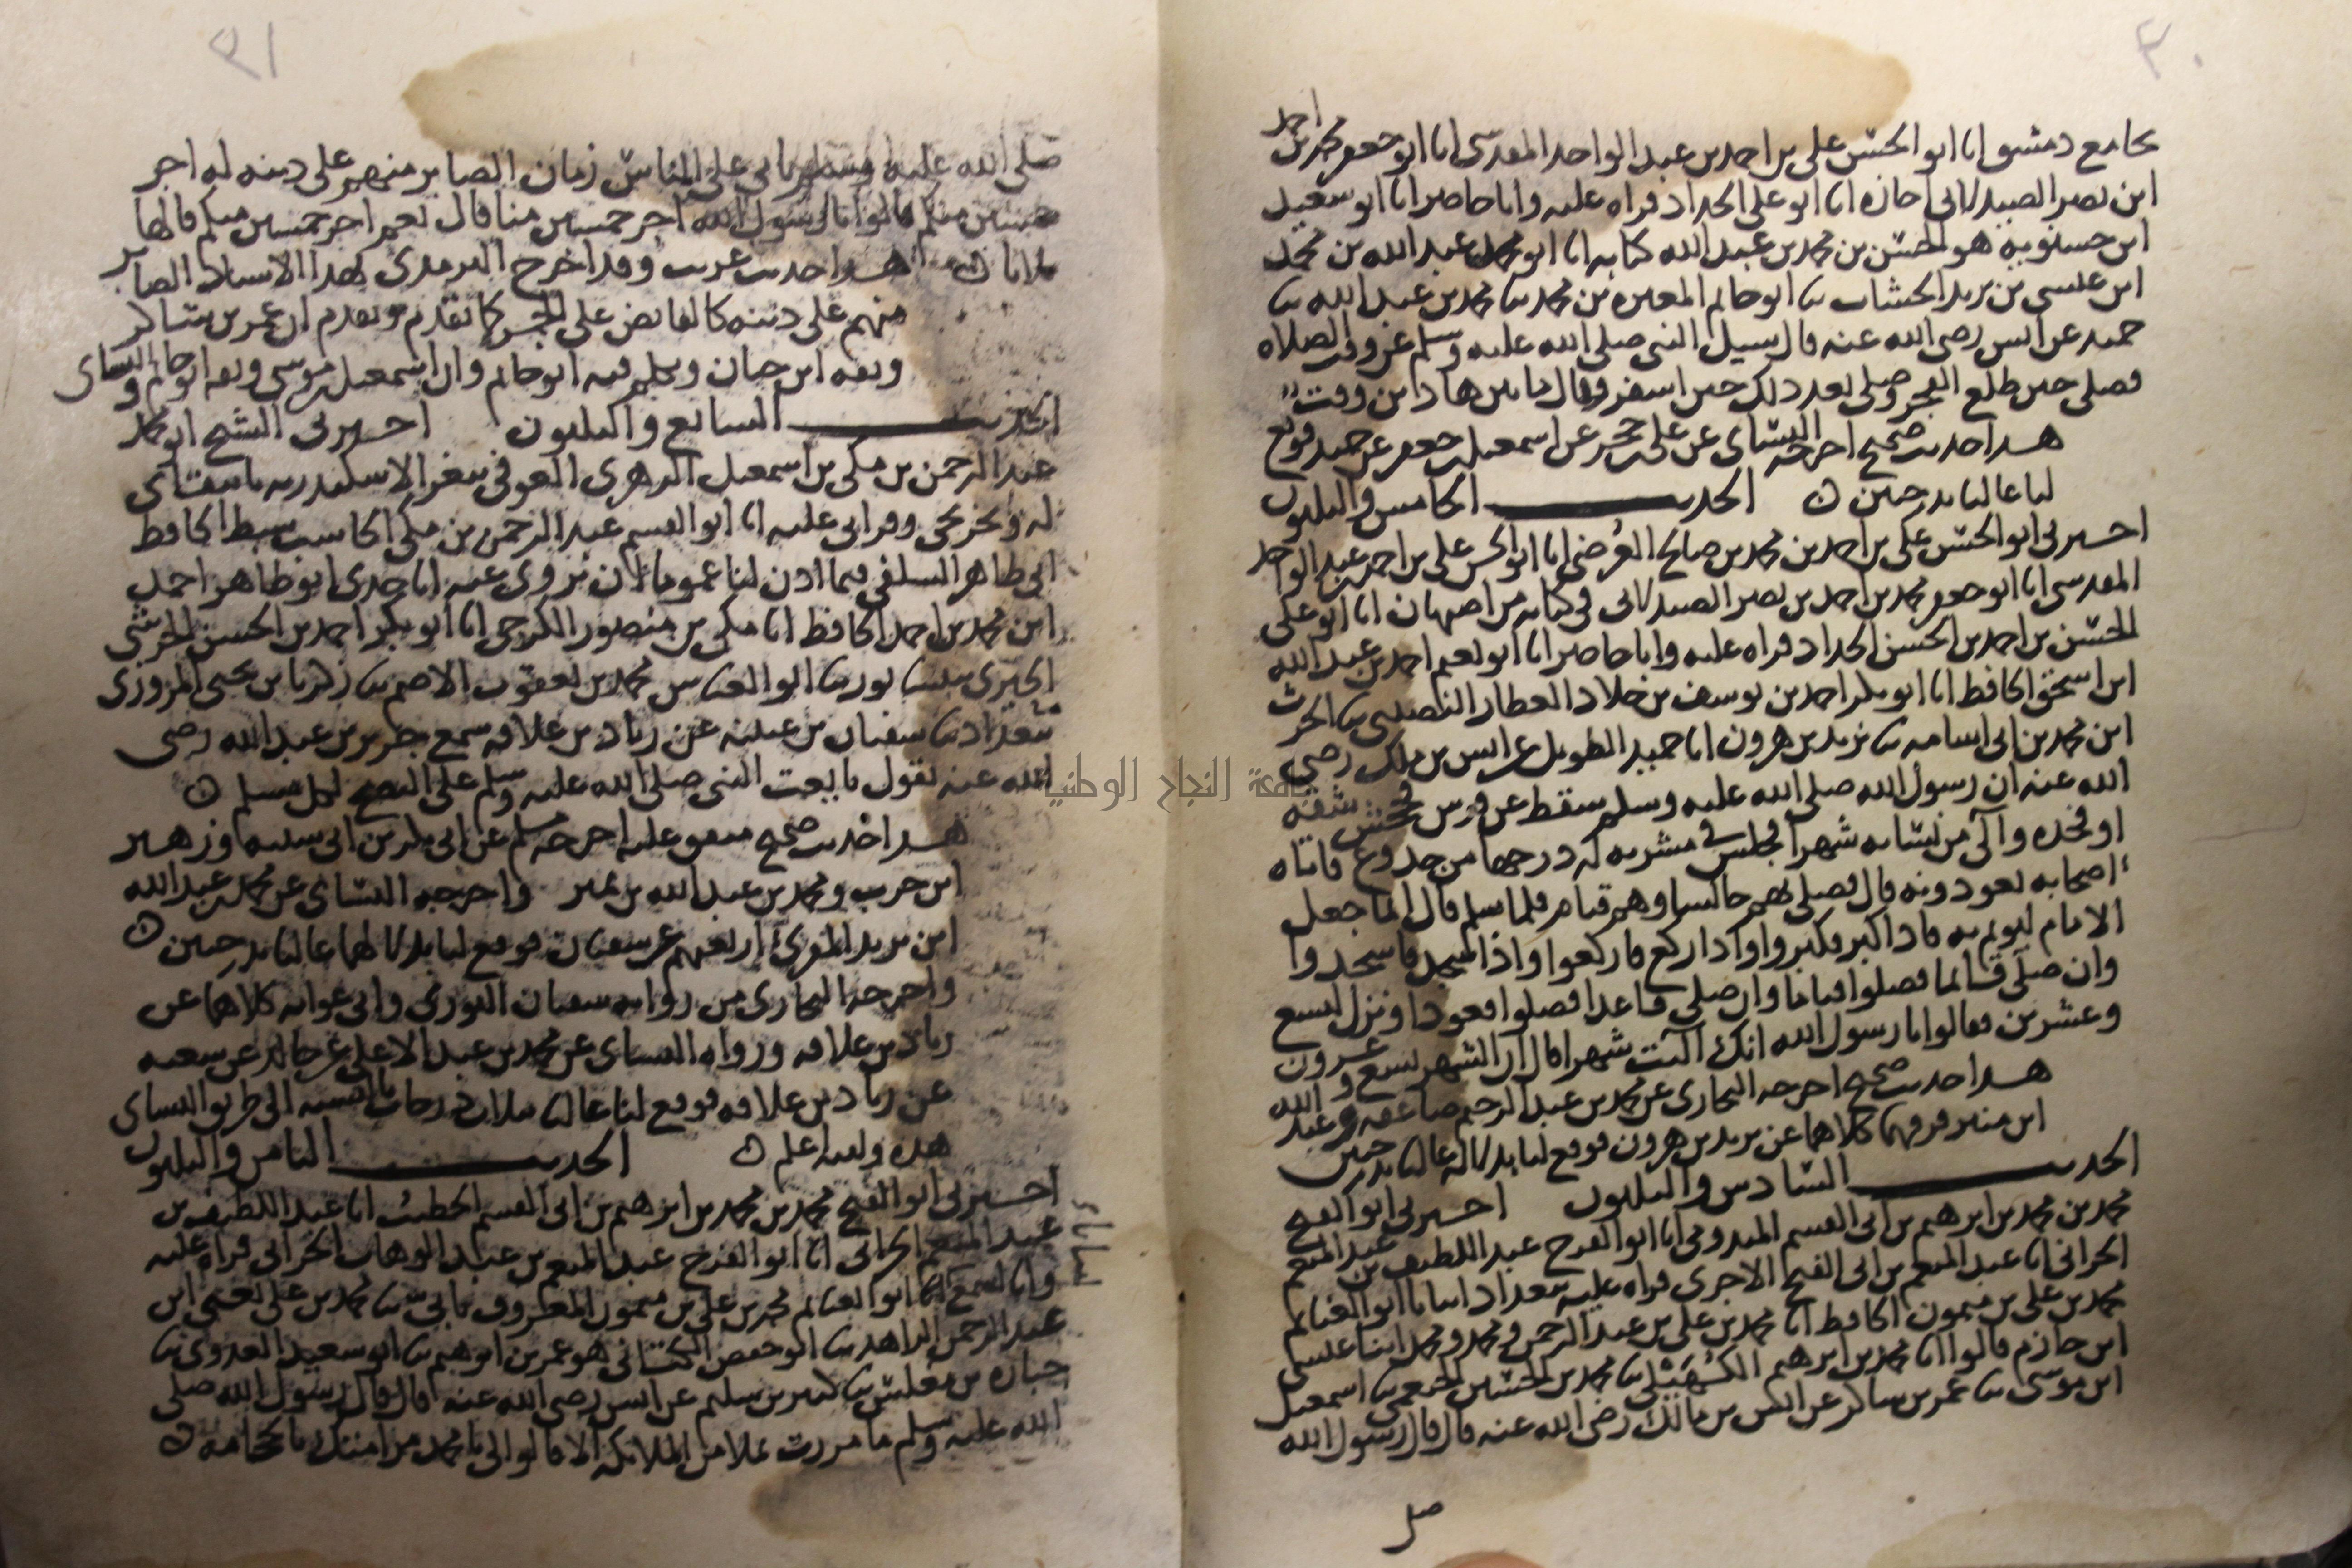 ٣٠
بجامع دمشق انا ابو الحسن على بن احمد بن عبد الواحد المقدسى انا ابو جعفر محمد بن احمد
ابن نصر الصيدلانى اجازه انا ابو على الحداد قراه عليه وانا حاضر انا ابو سعيد
ابن حسنويه هو الحسن بن محمد بن عبد الله كتابه انا ابو محمد عبد الله بن محمد
ابن عيسى بن يزيد الخشاب ثنا ابو حاتم المغيره بن محمد ثنا محمد بن عبد الله ثنا
حميد عن انس رضى الله عنه قال سيل النبى صلى الله عليه وسلم عن وقت الصلاه
فصلى حين طلع الفجر وصلى بعد ذلك حين اسفر وقال ما بين هاذين وقت
هذا حديث صحيح اخرجه النسائى عن على بن حجر عن اسمعيل بن جعفر عن حميد فوقع
لنا عاليا بدرجتين الحديث الخامس والثلثون
اخبرنى ابو الحسن على بن احمد بن محمد بن صالح العرضى انا ابو الحسن على بن احمد بن عبد الواحد
المقدسى انا ابو جعفر محمد بن احمد بن نصر الصيدلانى فى كتابه من اصبهان انا ابو على
الحسن بن احمد بن الحسن الحداد قراه عليه وانا حاضر انا ابو نعيم احمد بن عبد الله
ابن اسحق الحافظ انا ابو بكر احمد بن يوسف بن خلاد العطار النصيبى ثنا الحرث
ابن محمد بن ابى اسامه ثنا يزيد بن هرون انا حميد الطويل عن انس بن ملك رضى
الله عنه ان رسول الله صلى الله عليه وسلم سقط عن فرس فجحش شقه
او فخده وآلى من نسايه شهرا فجلس فى مشربه له درجها من جذوع فاتاه
اصحابه يعودونه قال فصلى بهم جالسا وهم قيام فلما سلم قال انما جعل
الامام ليوتم به فاذا كبر فكبروا واذا ركع فاركعوا واذا سجد فاسجدوا
وان صلى قائما فصلوا قياما وان صلى قاعدا فصلوا قعودا ونزل لتسع
وعشرين فقالوا يا رسول الله انك آليت شهرا قال ان الشهر تسع وعشرون
هذا حديث صحيح اخرجه البخارى عن محمد بن عبد الرحيم صاعقه وعبد الله
ابن منير فرقهما كلاهما عن يزيد بن هرون فوقع لنا بدلا له عاليا بدرجتين
الحديث السادس والثلثون اخبرنى ابو الفتح
محمد بن محمد بن ابرهيم بن ابى القسم الميدومى انا ابو الفرج عبد اللطيف بن عبد المنعم
الحرانى انا عبد المنعم بن ابى الفتح الاجرى قراه عليه ببغداد انا ابو الغنايم
محمد بن على بن ميمون الحافظ انا محمد بن على بن عبد الرحمن ومحمد ومحمد ابنا عيسى
ابن حازم قالوا انا محمد بن ابرهيم الكهيلى ثنا محمد بن الحسين الخثعمى ثنا اسمعيل
ابن موسى ثنا عمر بن شاكر عن انس بن مالك رضى الله عنه قال قال رسول الله
صلى
٣١
صلى الله عليه وسلم ياتى على الناس زمان الصابر منهم على دينه له اجر
خمسين منكم قالوا يا رسول الله اجر خمسين منا قال نعم اجر خمسين منكم قالها
ثلاثا هذا حديث غريب وقد اخرج الترمذى بهذا الاسناد الصابر
منهم على دينه كالقابض على الجمر كما تقدم وتقدم ان عمر بن شاكر
وثقه ابن حبان وتكلم فيه ابو حاتم وان اسمعيل بن موسى وثقه ابو حاتم والنسائى
الحديث السابع والثلثون اخبرنى الشيخ ابو محمد
عبد الرحمن بن مكى بن اسمعيل الزهرى العوفى بثغر الاسكندريه
له وقراتى عليه انا ابو القسم عبد الرحمن بن مكى الحاسب سبط الحافظ
ابى طاهر السلفى فيما اذن لنا عموما ان نروى عنه انا جدى ابو طاهر احمد
ابن محمد بن احمد الحافظ انا مكى بن منصور الكرجى انا ابو بكر احمد بن الحسن الحرشى
الحيرى بنيسابور ثنا ابو العباس محمد بن يعقوب الاصم ثنا زكريا بن يحيى المروزى
ببغداد ثنا سفيان بن عيينه عن زياد بن علاقه سمع جرير بن عبد الله رضى
الله عنه يقول بايعت النبى صلى الله عليه وسلم على النصح لكل مسلم
هذا حديث صحيح متفق عليه اخرجه مسلم عن ابى بكر بن ابى شيبه وزهير
ابن حرب ومحمد بن عبد الله بن نمير واخرجه النسائى عن محمد بن عبد الله
ابن يزيد المقرئ اربعتهم عن سفيان فوقع لنا بدلا لهما عاليا بدرجتين
واخرجه البخارى من روايه سفيان الثورى وابى عوانه كلاهما عن
زياد بن علاقه ورواه النسائى عن محمد بن عبد الاعلى عن خالد عن شعبه
عن زياد بن علاقه فوقع لنا عاليا بثلاث درجات بالنسبه الى طريق النسائى
هذه ولله اعلم الحديث الثامن والثلثون
اخبرنى ابو الفتح محمد بن محمد بن ابرهيم بن ابى القسم الخطيب انا عبد اللطيف بن
عبد المنعم الحرانى انا ابو الفرج عبد المنعم بن عبد الوهاب الحرانى قراه عليه
وانا اسمع انا ابو الغنايم محمد بن على بن ميمون المعروف بابى ثنا محمد بن على يعنى ابن
عبد الرحمن الزاهد ثنا ابو حفص الكتانى هو عمر بن ابرهيم ثنا ابو سعيد العدوى ثنا
جباره بن مغلس ثنا كثير بن سليم عن انس رضى الله عنه قال قال رسول الله صلى
الله عليه وسلم ما مررت بملا من الملايكه الا قالوا لى يا محمد مر امتك بالحجامه
جامعة النجاح الوطنية